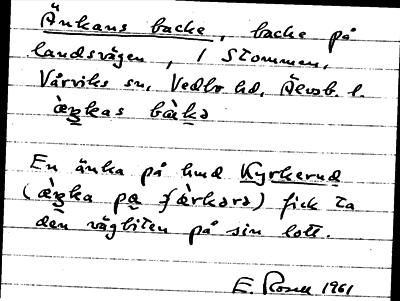 Änkans backe, backe på
landsvägen, i Stommen,
Vårviks sn, Vedbo hd, Älvsb. l.
En änka på hmd Kyrkerud
fick ta
den vägbiten på sin lott.
E. Rosell 1961